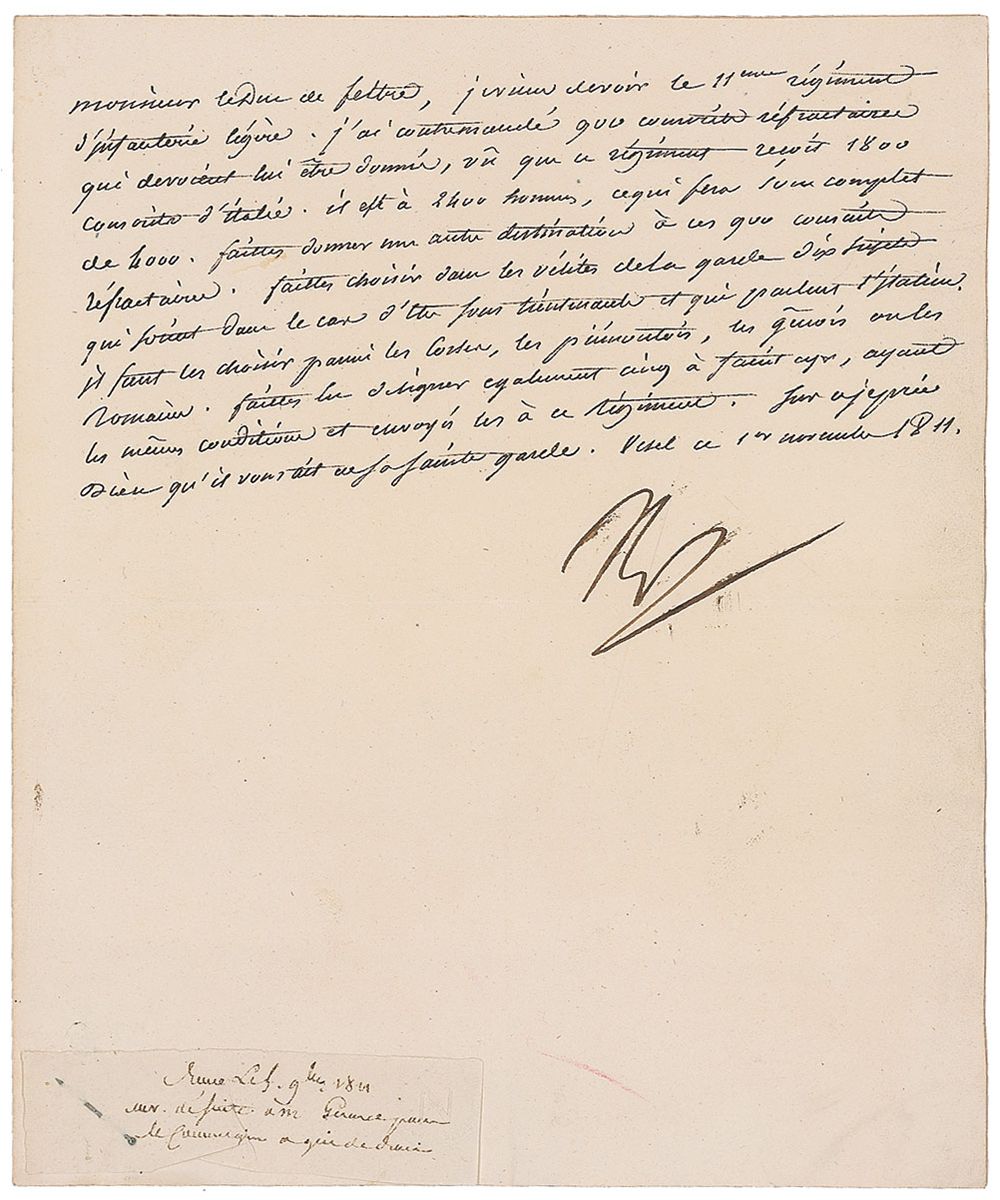 monsieur le Duc de feltre, je viens de voir le 11eme régiment
d'infanterie légère. j'ai contremandé 900 conscrits réfractaires
qui devoient lui être donnés, vû que ce régiment reçoit 1800
conscrits d'italie. il est à 2400 hommes, ce qui fera son complet
de 4000. faittes donner une autre destination à ces 900 conscrits
réfractaires. faittes choisir dans les vélites de la garde dix sujets
qui soient dans le cas d'être sous lieutenants et qui parlent l'italien.
il faut les choisir parmi les Corses, les piémontois, les génois ou les
Romains. faittes en désigner également cinq à saint cyr, ayant
les mêmes conditions et envoyés les à ce régiment. Sur ce je prie
Dieu qu'il vous ait en sa sainte garde. Vesel ce 1er novembre 1811.
Np
9bre 1811